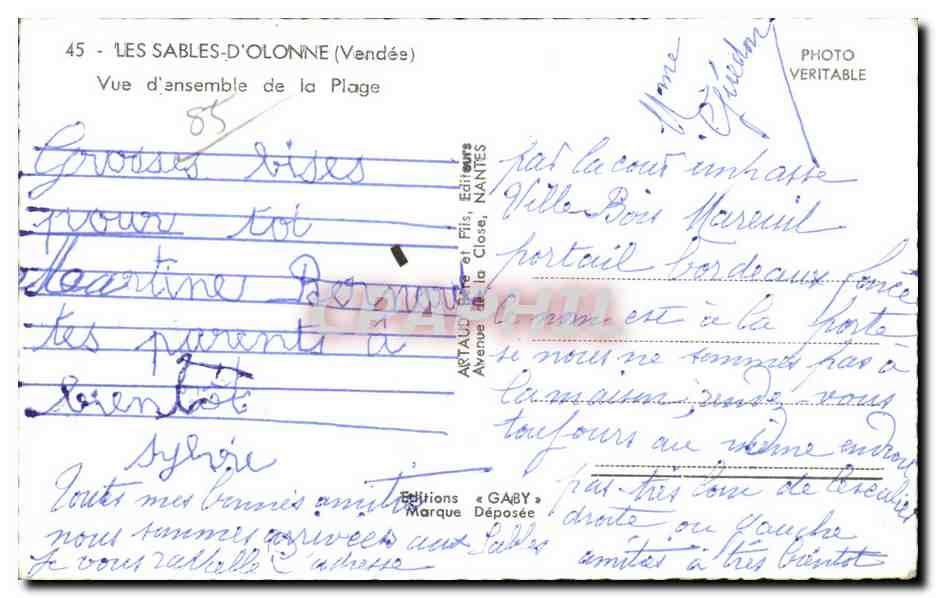 45 - LES SABLES-D'OLONNE (Vendée)
Vue d'ensemble de la Plage
85
PHOTO
VERITABLE
Mme
Grosses bises
pour toi
Martine
tes parents à
bientôt
Sylvie
Toutes mes bonnes amitiés
nous sommes arrivées aux Sables
Je vous rappelle l'adresse
ARTAUD Père et Fils, Editeurs
Avenue de la Close, NANTES
Editions « GABY »
Marque Déposée
par la cour impasse
Ville Bois Mareuil
portail bordeaux foncé
le nom est à la porte
si nous ne sommes pas à
la maison, rendez-vous
toujours au même endroit
pas très loin de l'escalier
droite ou gauche
amitiés à très bientôt
CPARHTI